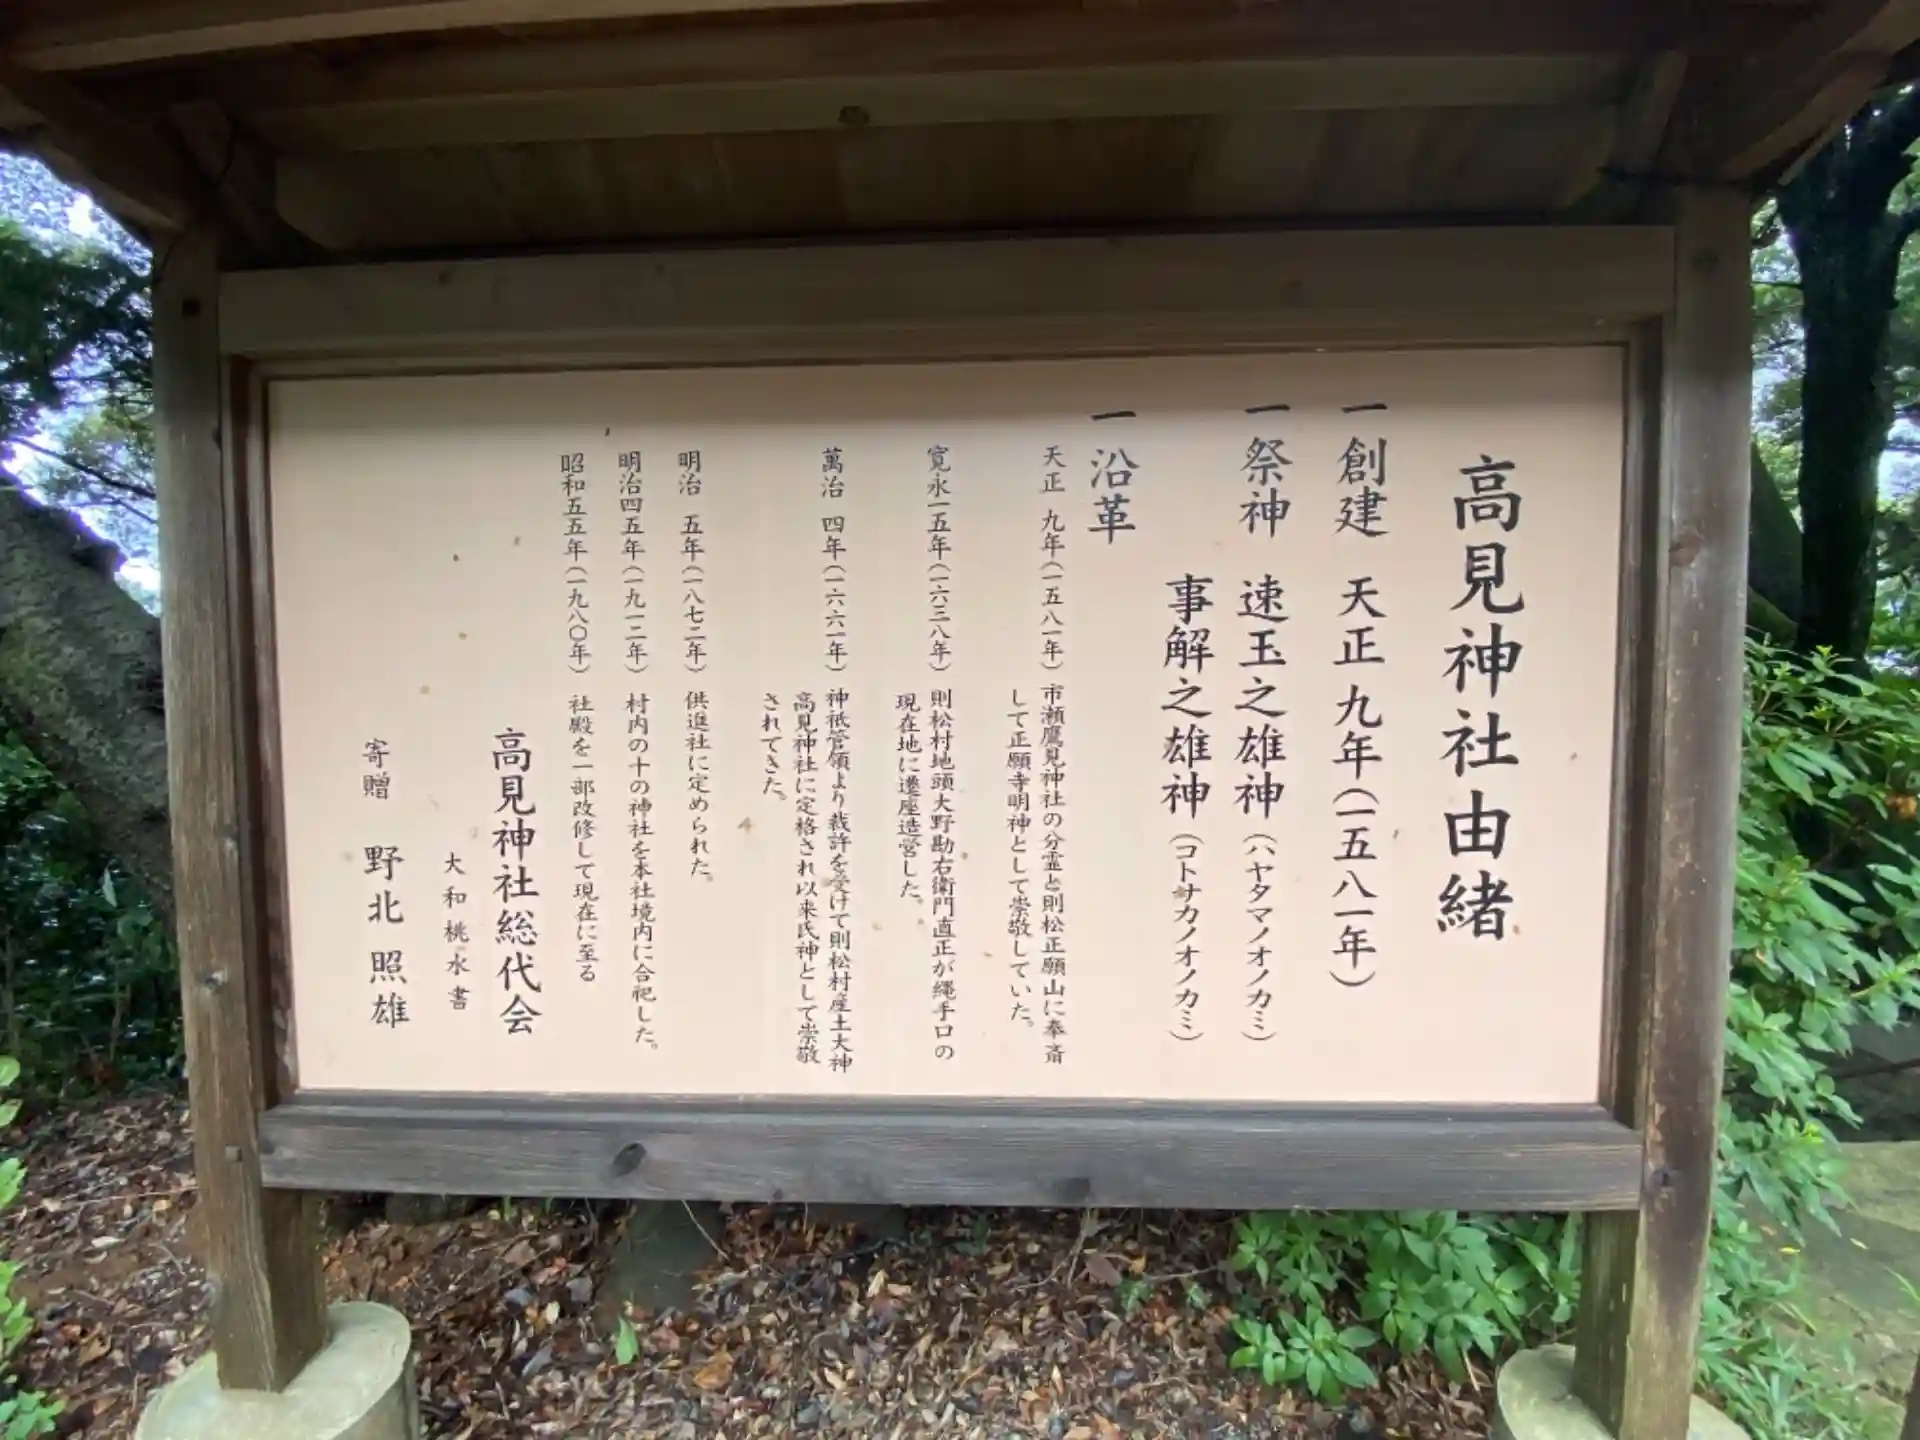 高見神社由緒
一創建 天正九年(一五八一年)
一祭神 速玉之雄神(ハヤタマノオノカミ)
事解之雄神(コトサカノオノカミ)
一沿革
天正 九年(一五八一年) 市瀬鷹見神社の分霊と則松正願山に奉斎
して正願寺明神として崇敬していた。
寛永一五年(一六三八年) 則松村地頭大野勘右衛門直正が縄手口の
現在地に遷座造営した。
萬治 四年(一六六一年) 神祇管領より裁許を受けて則松村産土大神
高見神社に定格され以来氏神として崇敬
されてきた。
明治 五年(一八七二年) 供進社に定められた。
明治四五年(一九一二年) 村内の十の神社を本社境内に合祀した。
昭和五五年(一九八〇年) 社殿を一部改修して現在に至る
高見神社総代会
大和桃水書
寄贈 野北照雄